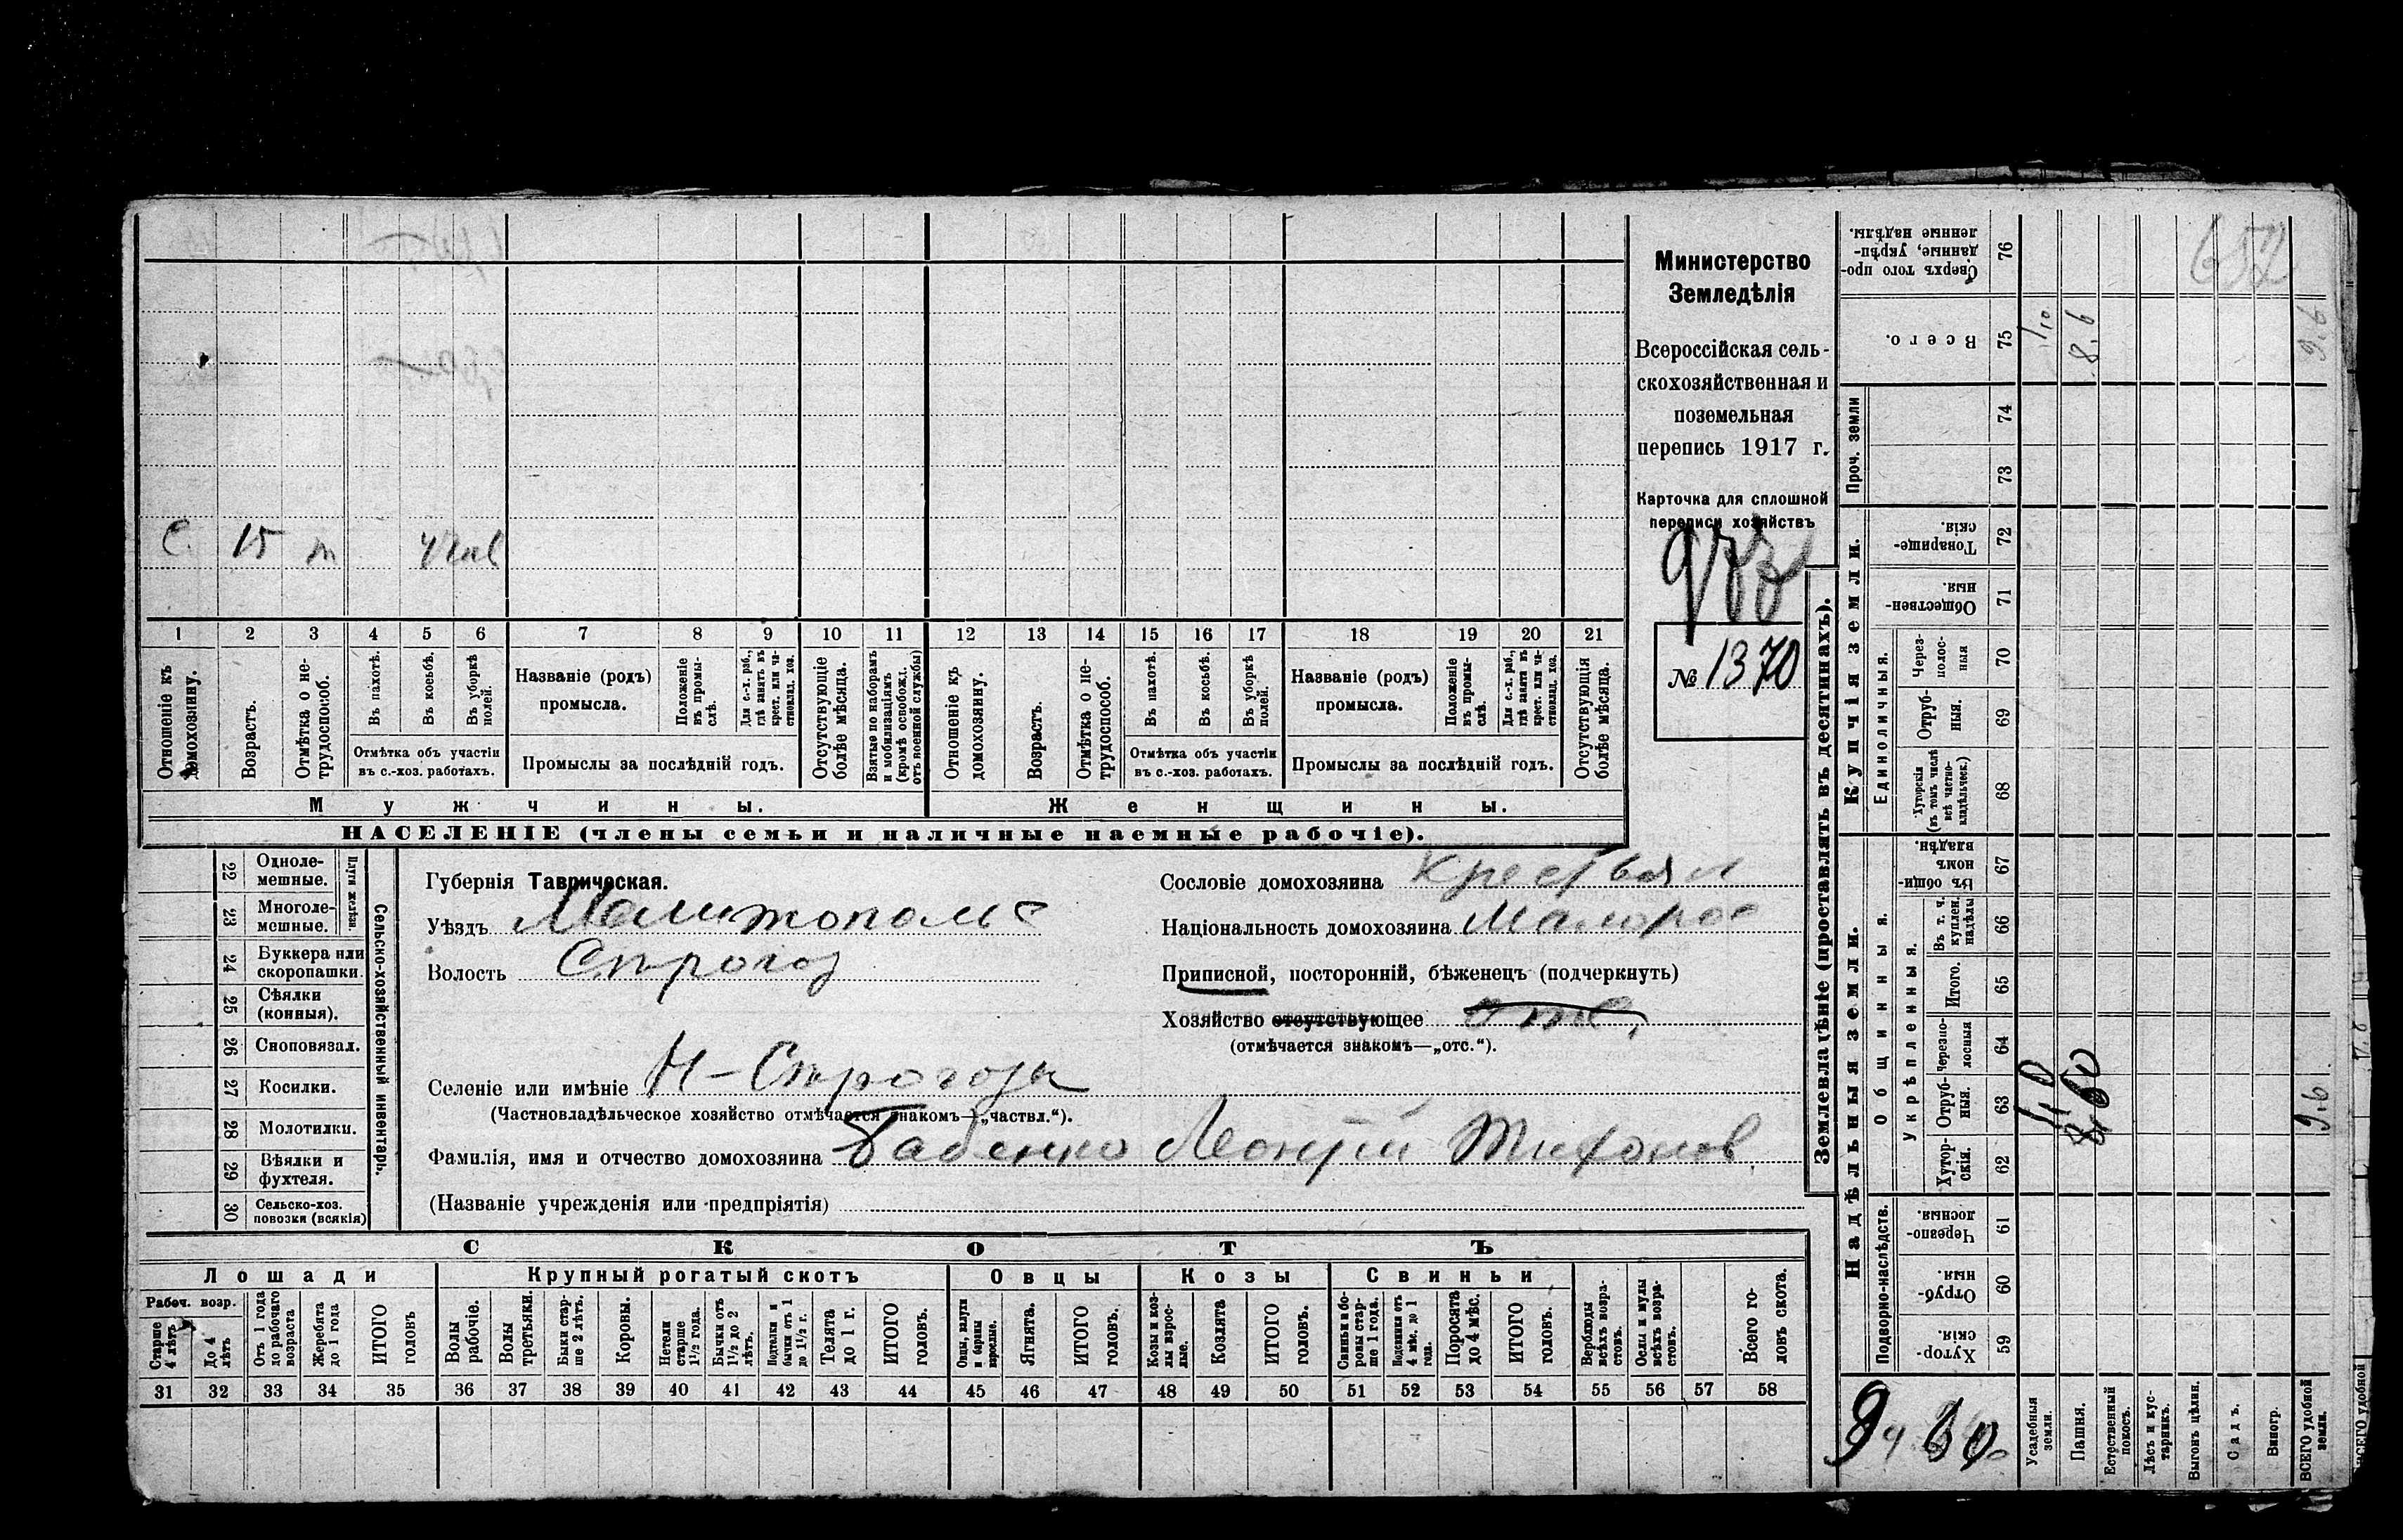 Министерство
Земледѣлія
Всероссійская сель-
скохозяйственная и
поземельная
перепись 1917 г.
Карточка для сплошной
переписи хозяйствъ
977
№ 1370
652
С. 15
1 2 3 4 5 6 7 8 9 10 11 12 13 14 15 16 17 18 19 20 21
Отношеніе къ домохозяину.
Возрастъ.
Отмѣтка о не-
трудоспособ.
Въ пахотѣ.
Въ косьбѣ.
Въ уборкѣ
полей.
Отмѣтка объ участіи
въ с.-хоз. работахъ.
Названіе (родъ)
промысла.
Положеніе
въ промы-
слѣ.
Для с.-х. раб.,
гдѣ занятъ въ
крест. или ча-
стновлад. хоз.
Промыслы за послѣдній годъ.
Отсутствующіе
болѣе мѣсяца.
Взятые по наборамъ
и мобилизаціямъ
(кромѣ освобожд.
отъ военной службы)
Отношеніе къ
домохозяину.
Возрастъ.
Отмѣтка о не-
трудоспособ.
Въ пахотѣ.
Въ косьбѣ.
Въ уборкѣ
полей.
Отмѣтка объ участіи
въ с.-хоз. работахъ.
Названіе (родъ)
промысла.
Положеніе
въ промы-
слѣ.
Для с.-х. раб.,
гдѣ занята въ
крест. или ча-
стновлад. хоз.
Промыслы за послѣдній годъ.
Отсутствующія
болѣе мѣсяца.
Мужчины.
Женщины.
НАСЕЛЕНІЕ (члены семьи и наличные наемные рабочіе).
22 Одноле-
мешные.
23 Многоле-
мешные.
Плуги желѣзн.
24 Буккера или
скоропашки.
25 Сѣялки
(конныя).
26 Сноповязал.
27 Косилки.
28 Молотилки.
29 Вѣялки и
фухтеля.
30 Сельско-хоз.
повозки (всякія)
Сельско-хозяйственный инвентарь.
Губернія Таврическая.
Уѣздъ Мелитополь
Волость Сирогоз
Селеніе или имѣніе Н-Сирогозы
(Частновладѣльческое хозяйство отмѣчается знакомъ—„частвл.“).
Фамилія, имя и отчество домохозяина Бабенко Леонтій Тихонов
(Названіе учрежденія или предпріятія)
Сословіе домохозяина Крестьян
Національность домохозяина Малорос
Приписной, посторонній, бѣженецъ (подчеркнуть)
Хозяйство отсутствующее отс.
(отмѣчается знакомъ—„отс.“).
СКОТЪ
Лошади
Крупный рогатый скотъ
Овцы
Козы
Свиньи
Рабоч. возр.
Старше
4 лѣтъ
До 4
лѣтъ
Отъ 1 года
до рабочаго
возраста
Жеребята
до 1 года
ИТОГО
головъ
Волы
рабочіе.
Волы
третьяки.
Быки стар-
ше 2 лѣтъ.
Коровы.
Нетели
старше
1½ года.
Бычки отъ
1½ до 2
лѣтъ.
Подтелки и
бычки отъ 1
до 1½ г.
Телята
до 1 г.
ИТОГО
головъ.
Овцы, валухи
и бараны
взрослые.
Ягнята.
ИТОГО
головъ.
Козы и коз-
лы взрос-
лые.
Козлята
ИТОГО
головъ.
Свиньи и бо-
ровы стар-
ше 1 года.
Подсвинки отъ
4 мѣс. до 1
года.
Поросята
до 4 мѣс.
ИТОГО
головъ.
Верблюды
всѣхъ возра-
стовъ.
Ослы и мулы
всѣхъ возра-
стовъ.
Всего го-
ловъ скота.
31 32 33 34 35 36 37 38 39 40 41 42 43 44 45 46 47 48 49 50 51 52 53 54 55 56 57 58
Землевладѣніе (проставлять въ десятинахъ).
Надѣльныя земли.
Купчія земли.
Проч. земли
Подворно-наслѣдств.
Общинныя.
Укрѣпленныя.
Единоличныя.
Хутор-
скія. 59
Отруб-
ныя. 60
Черезпо-
лосныя. 61
Хутор-
скія. 62
Отруб-
ныя. 63
Черезпо-
лосныя 64
Итого. 65
Въ т. ч.
куплен.
надѣлы 66
Въ общи-
номъ
владѣн. 67
Хуторскія
(въ томъ числѣ
всѣ частно-
владѣльческ.) 68
Отруб-
ныя. 69
Через-
полос-
ныя 70
Обществен-
ныя 71
Товарище-
скія. 72
73
74
Всего. 75
Сверхъ того про-
данные, укрѣп-
ленные надѣлы. 76
Усадебныя
земли.
Пашня.
Естественный
покосъ.
Лѣсъ и кус-
тарникъ.
Выгонъ цѣлин.
Садъ.
Виногр.
ВСЕГО удобной
земли.
ВСЕГО удобной
1/10
8.6
9.6
9.6